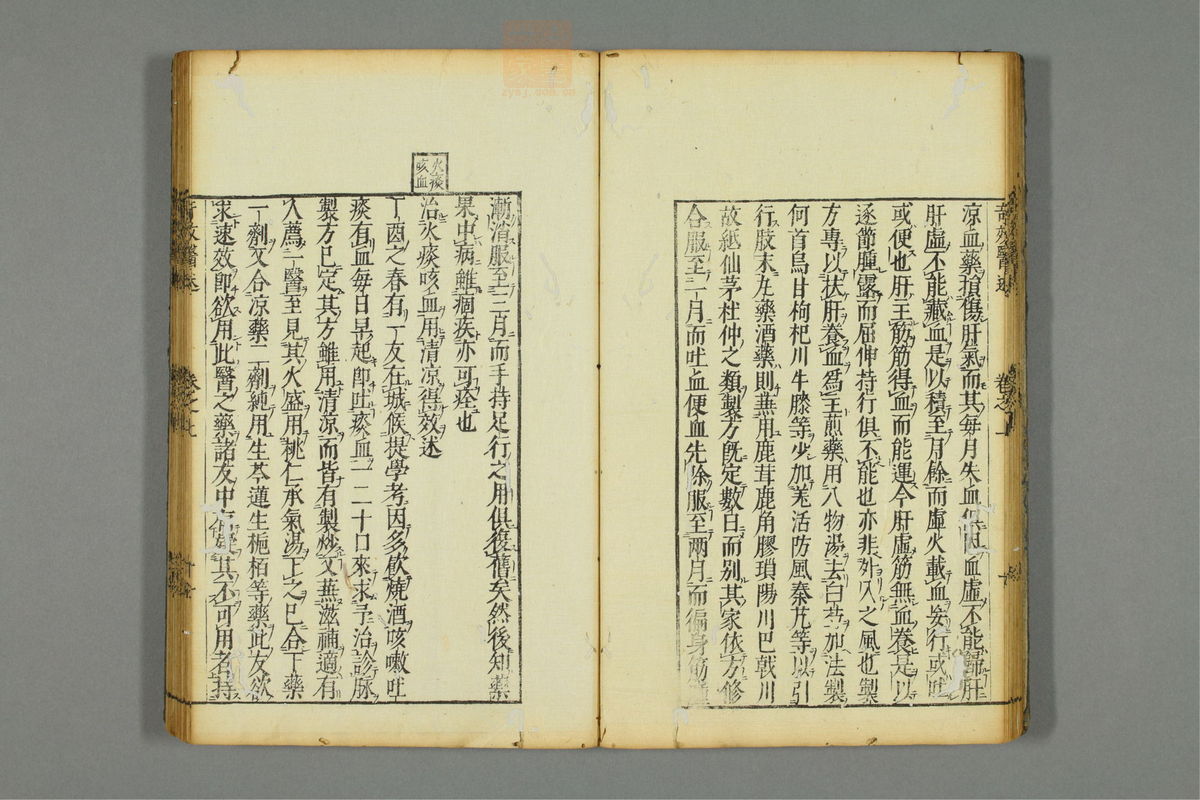 涼血藥損傷肝氣而其每月失血俱因血虛不能歸肝
肝虛不能藏血是以積至月餘而虛火載血妄行或吐
或便也肝主筋筋得血而能運今肝虛筋無血養是以
逐節腫露而屈伸持行俱不能也亦非外入之風也製
方專以扶肝養血爲主煎藥用八物湯去白朮加法製
何首烏甘枸杞川牛膝等少加羌活防風秦艽等以引
行肢末丸藥酒藥則兼用鹿茸鹿角膠瑣陽川巴戟川
故紙仙茅杜仲之類製方旣定數日而別其家依方修
合服至一月而吐血便血先除服至兩月而徧身筋
漸消服至三月而手持足行之用俱復舊矣然後知藥
果中病雖痼疾亦可痊也
火痰咳血
治火痰咳血用清凉得效述
丁酉之春有一友在城候提學考因多飲燒酒咳嗽吐
痰有血每日早起即吐痰血一二十口來求予治診脉
製方已定其方雖用清凉而皆有製炒又兼滋補適有
人薦一醫至見其火盛用桃仁承氣湯下之已合下藥
一劑又合凉藥二劑純用生芩連生梔栢等藥此友欲
求速效即欲用此醫之藥諸友中有疑其不可用者持
奇效醫述
卷之一
奇效醫述
卷之一
zysj.com.cn